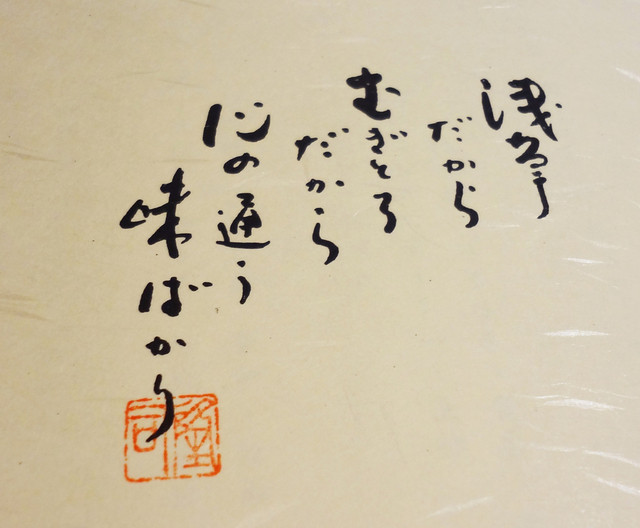 浅草
だから
むぎとろ
だから
心の通う
味ばかり